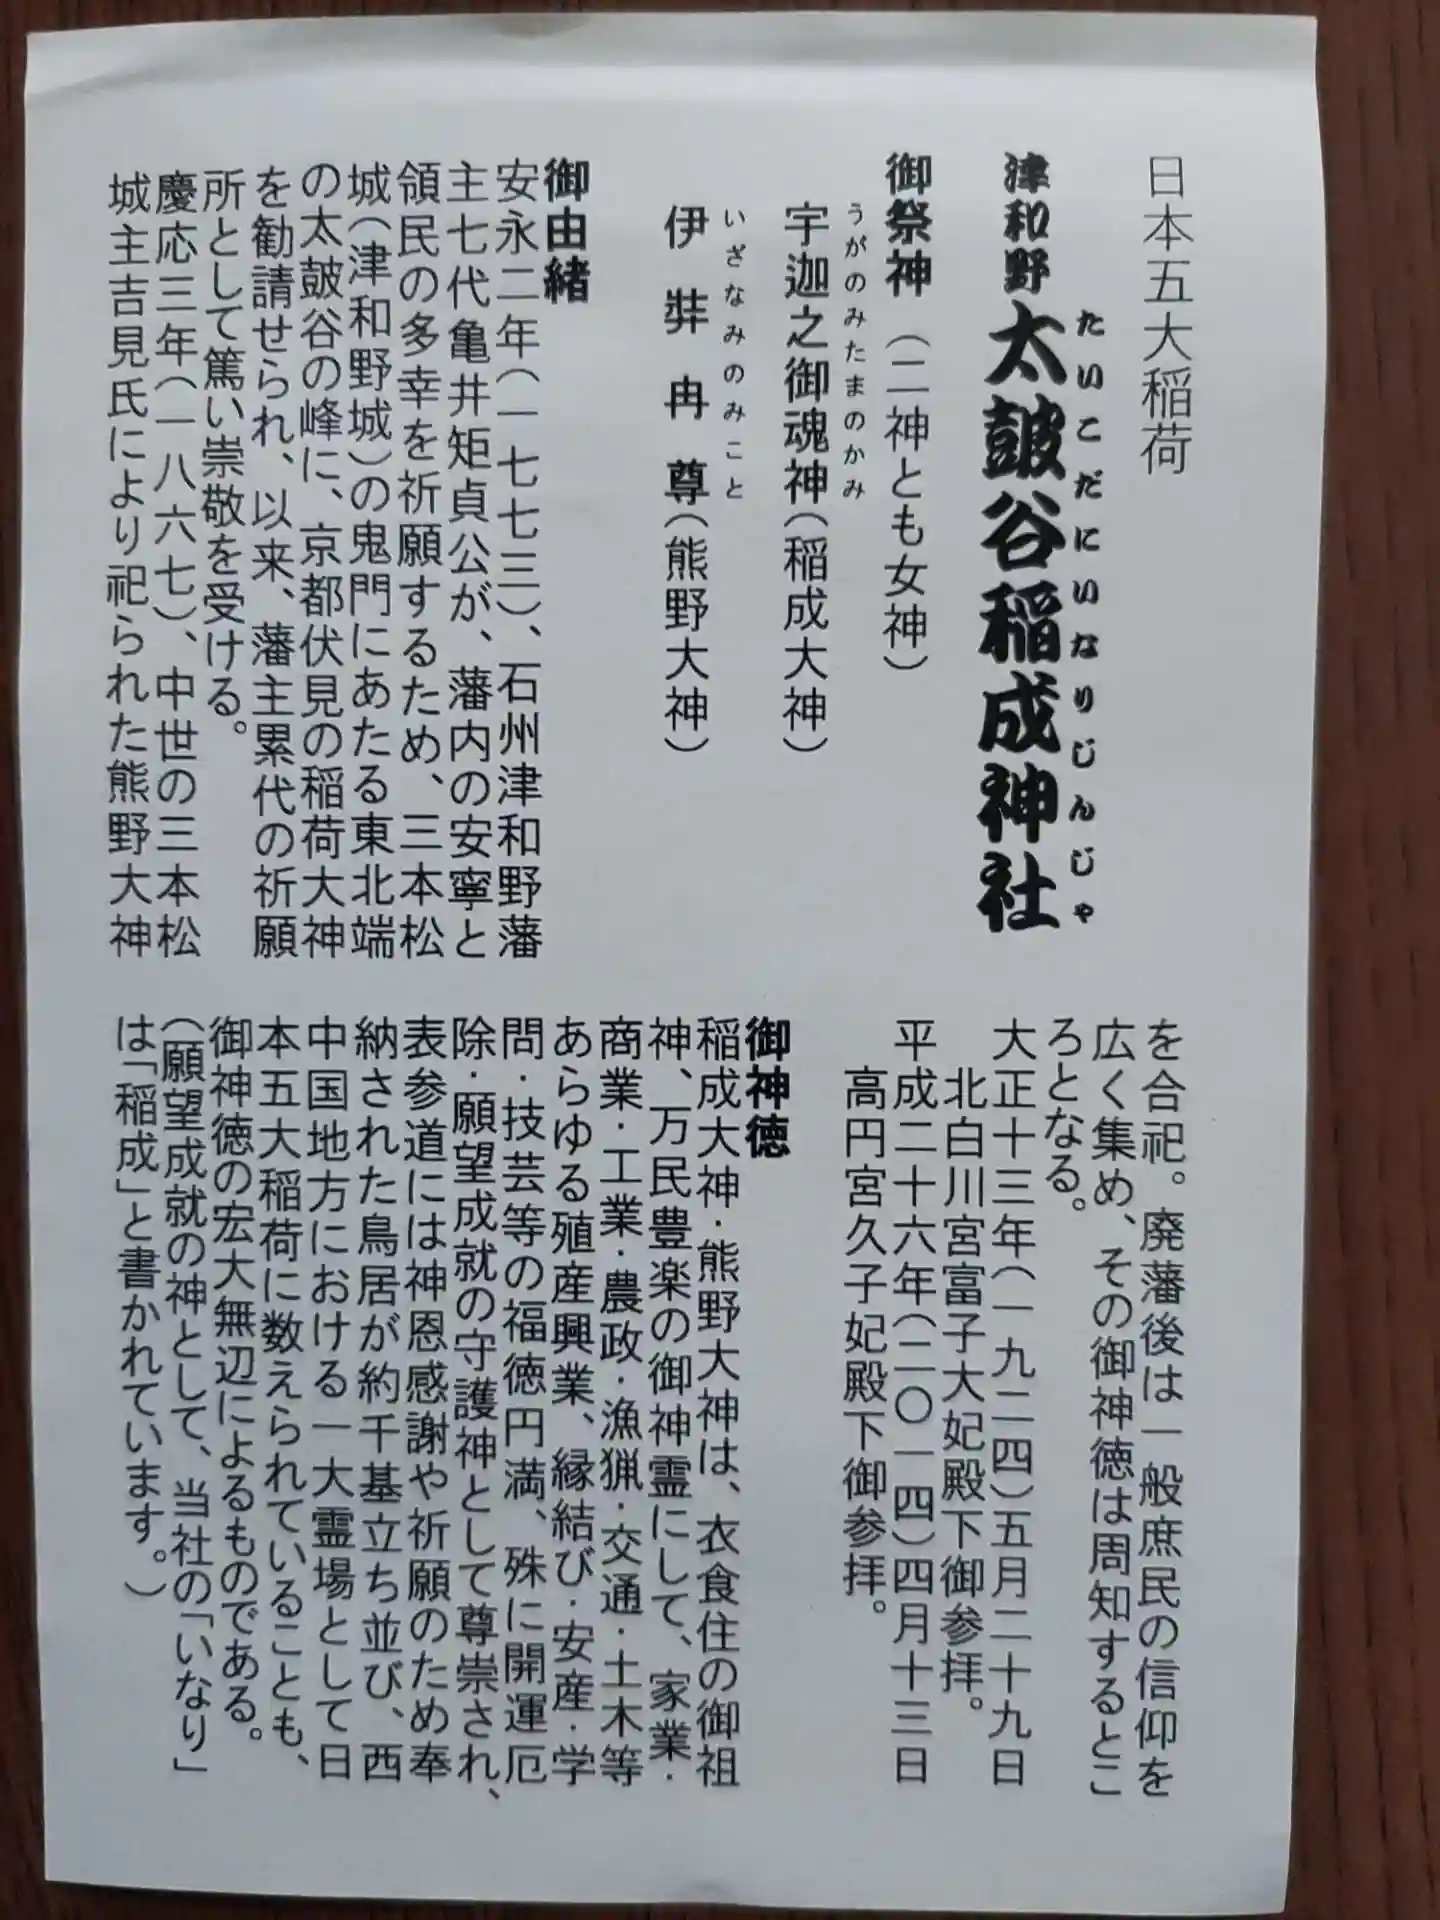 日本五大稲荷
津和野 太皷谷稲成神社
たいこだにいなりじんじゃ
御祭神 （二神とも女神）
うがのみたまのかみ
宇迦之御魂神（稲成大神）
いざなみのみこと
伊弉冉尊（熊野大神）
御由緒
安永二年（一七七三）、石州津和野藩
主七代亀井矩貞公が、藩内の安寧と
領民の多幸を祈願するため、三本松
城（津和野城）の鬼門にあたる東北端
の太皷谷の峰に、京都伏見の稲荷大神
を勧請せられ、以来、藩主累代の祈願
所として篤い崇敬を受ける。
慶応三年（一八六七）、中世の三本松
城主吉見氏により祀られた熊野大神
を合祀。廃藩後は一般庶民の信仰を
広く集め、その御神徳は周知するとこ
ろとなる。
大正十三年（一九二四）五月二十九日
北白川宮富子大妃殿下御参拝。
平成二十六年（二〇一四）四月十三日
高円宮久子妃殿下御参拝。
御神徳
稲成大神・熊野大神は、衣食住の御祖
神、万民豊楽の御神霊にして、家業・
商業・工業・農政・漁猟・交通・土木等
あらゆる殖産興業、縁結び・安産・学
問・技芸等の福徳円満、殊に開運厄
除・願望成就の守護神として尊崇され、
表参道には神恩感謝や祈願のため奉
納された鳥居が約千基立ち並び、西
中国地方における一大霊場として日
本五大稲荷に数えられていることも、
御神徳の宏大無辺によるものである。
（願望成就の神として、当社の「いなり」
は「稲成」と書かれています。）